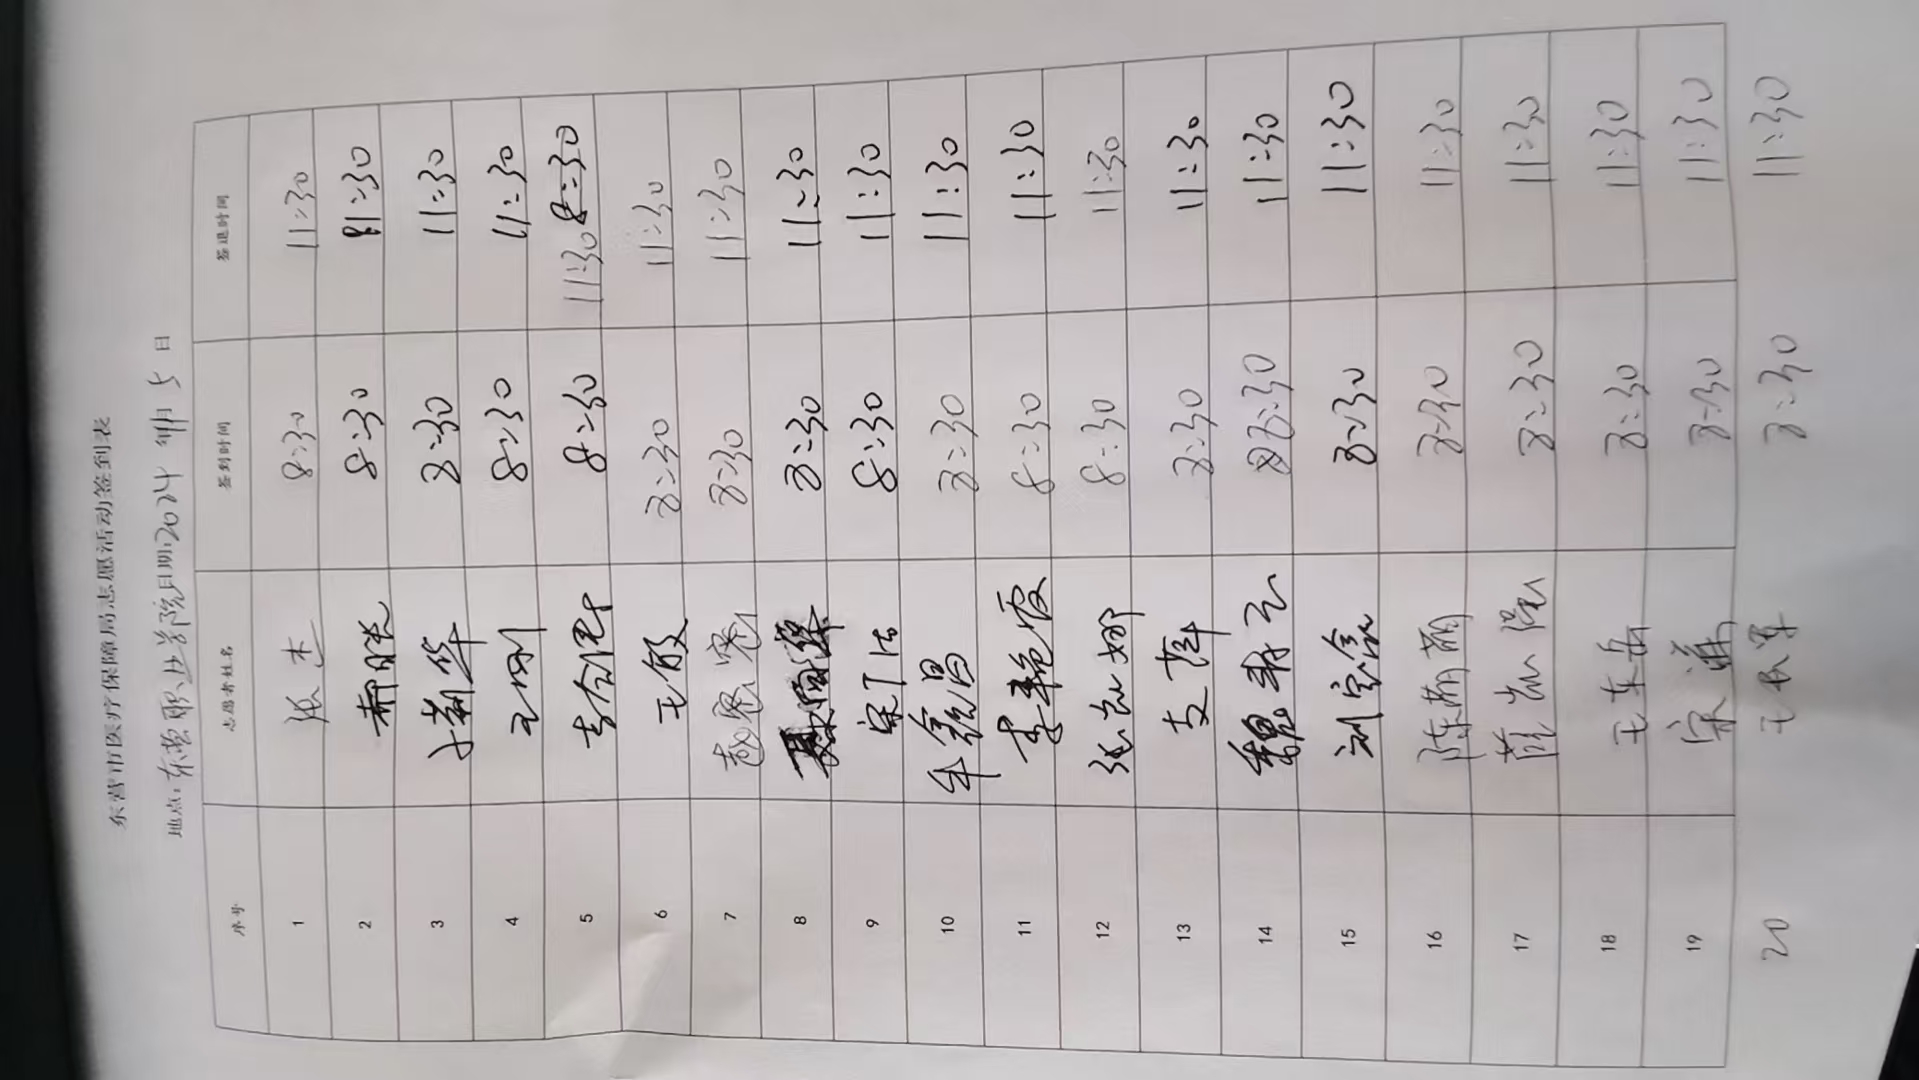 东营市医疗保障局志愿活动签到表
地点:东营职业学院 日期:2024 年 月 5 日
序号 志愿者姓名 签到时间 签退时间
1 张杰 8:30 11:30
2 8:30 11:30
3 8:30 11:30
4 王刚 8:30 11:30
5 8:30 11:30 8:30
6 王俊 8:30 11:30
7 8:30 11:30
8 8:30 11:30
9 宋丁 8:30 11:30
10 8:30 11:30
11 李艳霞 8:30 11:30
12 张娜 8:30 11:30
13 支萍 8:30 11:30
14 魏 8:30 11:30
15 刘 8:30 11:30
16 陈萌萌 8:30 11:30
17 8:30 11:30
18 王东岳 8:30 11:30
19 宋 8:30 11:30
20 王 8:30 11:30